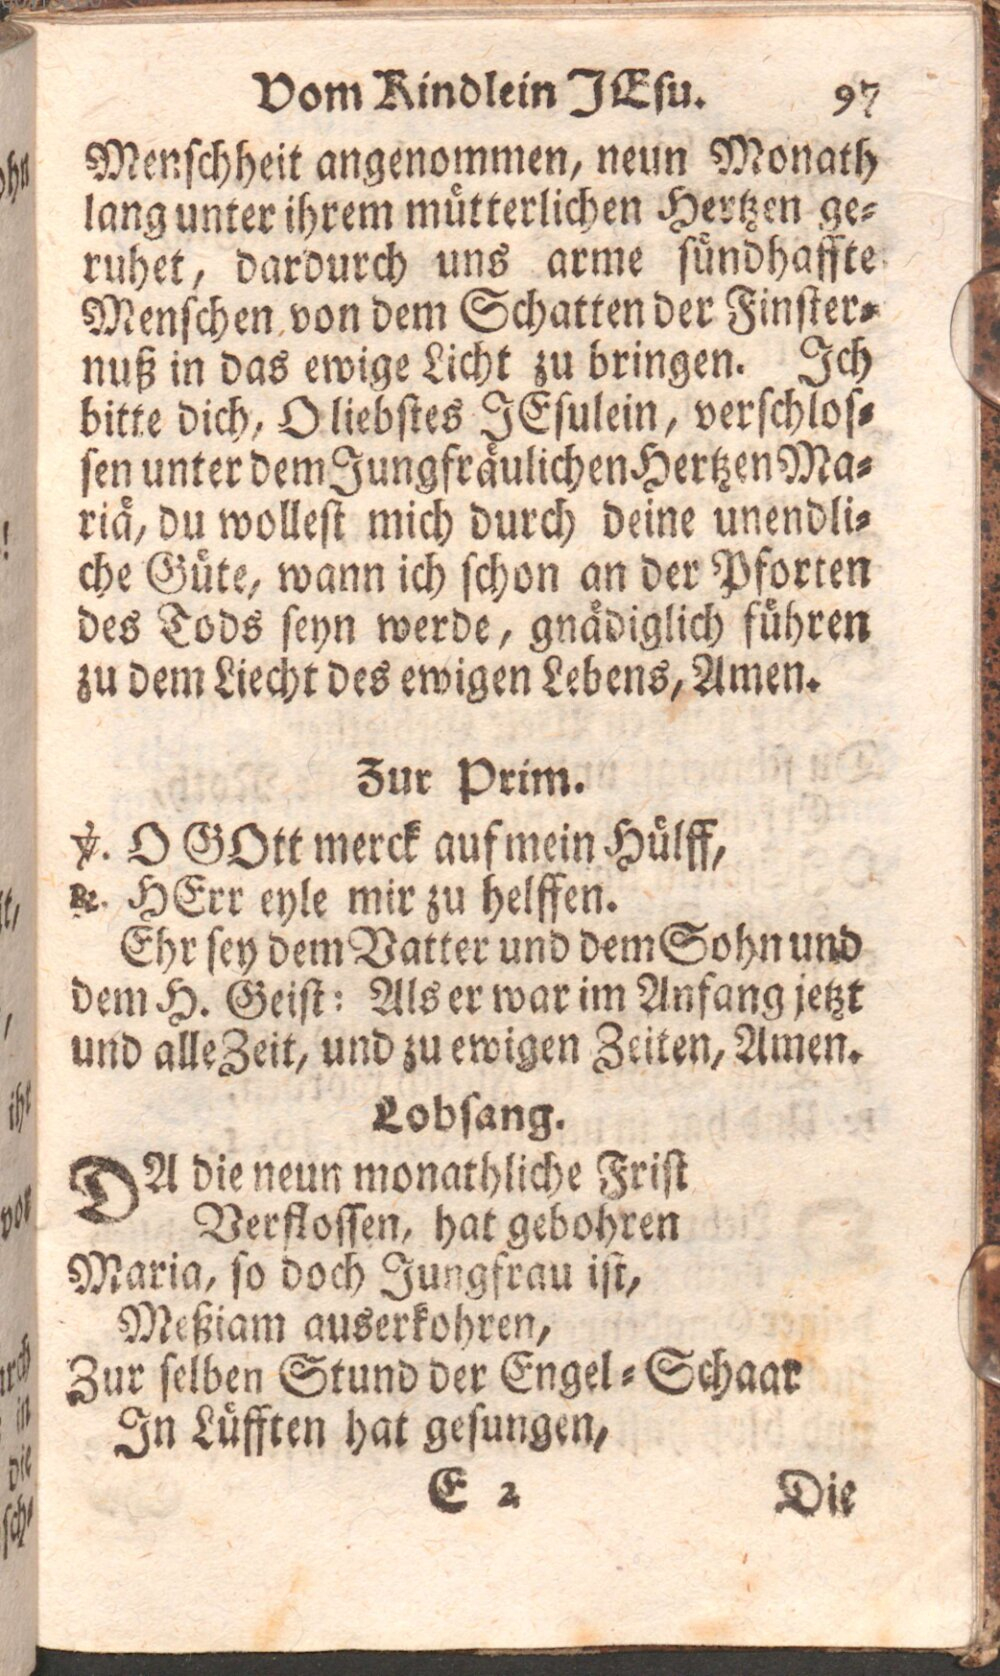 Vom Kindlein JEsu. 97
Menschheit angenommen, neun Monath
lang unter ihrem mütterlichen Hertzen ge-
ruhet, dardurch uns arme sündhaffte
Menschen von dem Schatten der Finster-
nuß in das ewige Licht zu bringen. Ich
bitte dich, O liebstes JEsulein, verschlos-
sen unter dem Jungfräulichen Hertzen Ma-
riä, du wollest mich durch deine unendli-
che Güte, wann ich schon an der Pforten
des Tods seyn werde, gnädiglich führen
zu dem Liecht des ewigen Lebens, Amen.
Zur Prim.
℣. O GOtt merck auf mein Hülff,
℟. HErr eyle mir zu helffen.
Ehr sey dem Vatter und dem Sohn und
dem H. Geist: Als er war im Anfang jetzt
und alle Zeit, und zu ewigen Zeiten, Amen.
Lobsang.
DA die neun monathliche Frist
Verflossen, hat gebohren
Maria, so doch Jungfrau ist,
Meßiam auserkohren,
Zur selben Stund der Engel-Schaar
In Lüfften hat gesungen,
E 2 Die